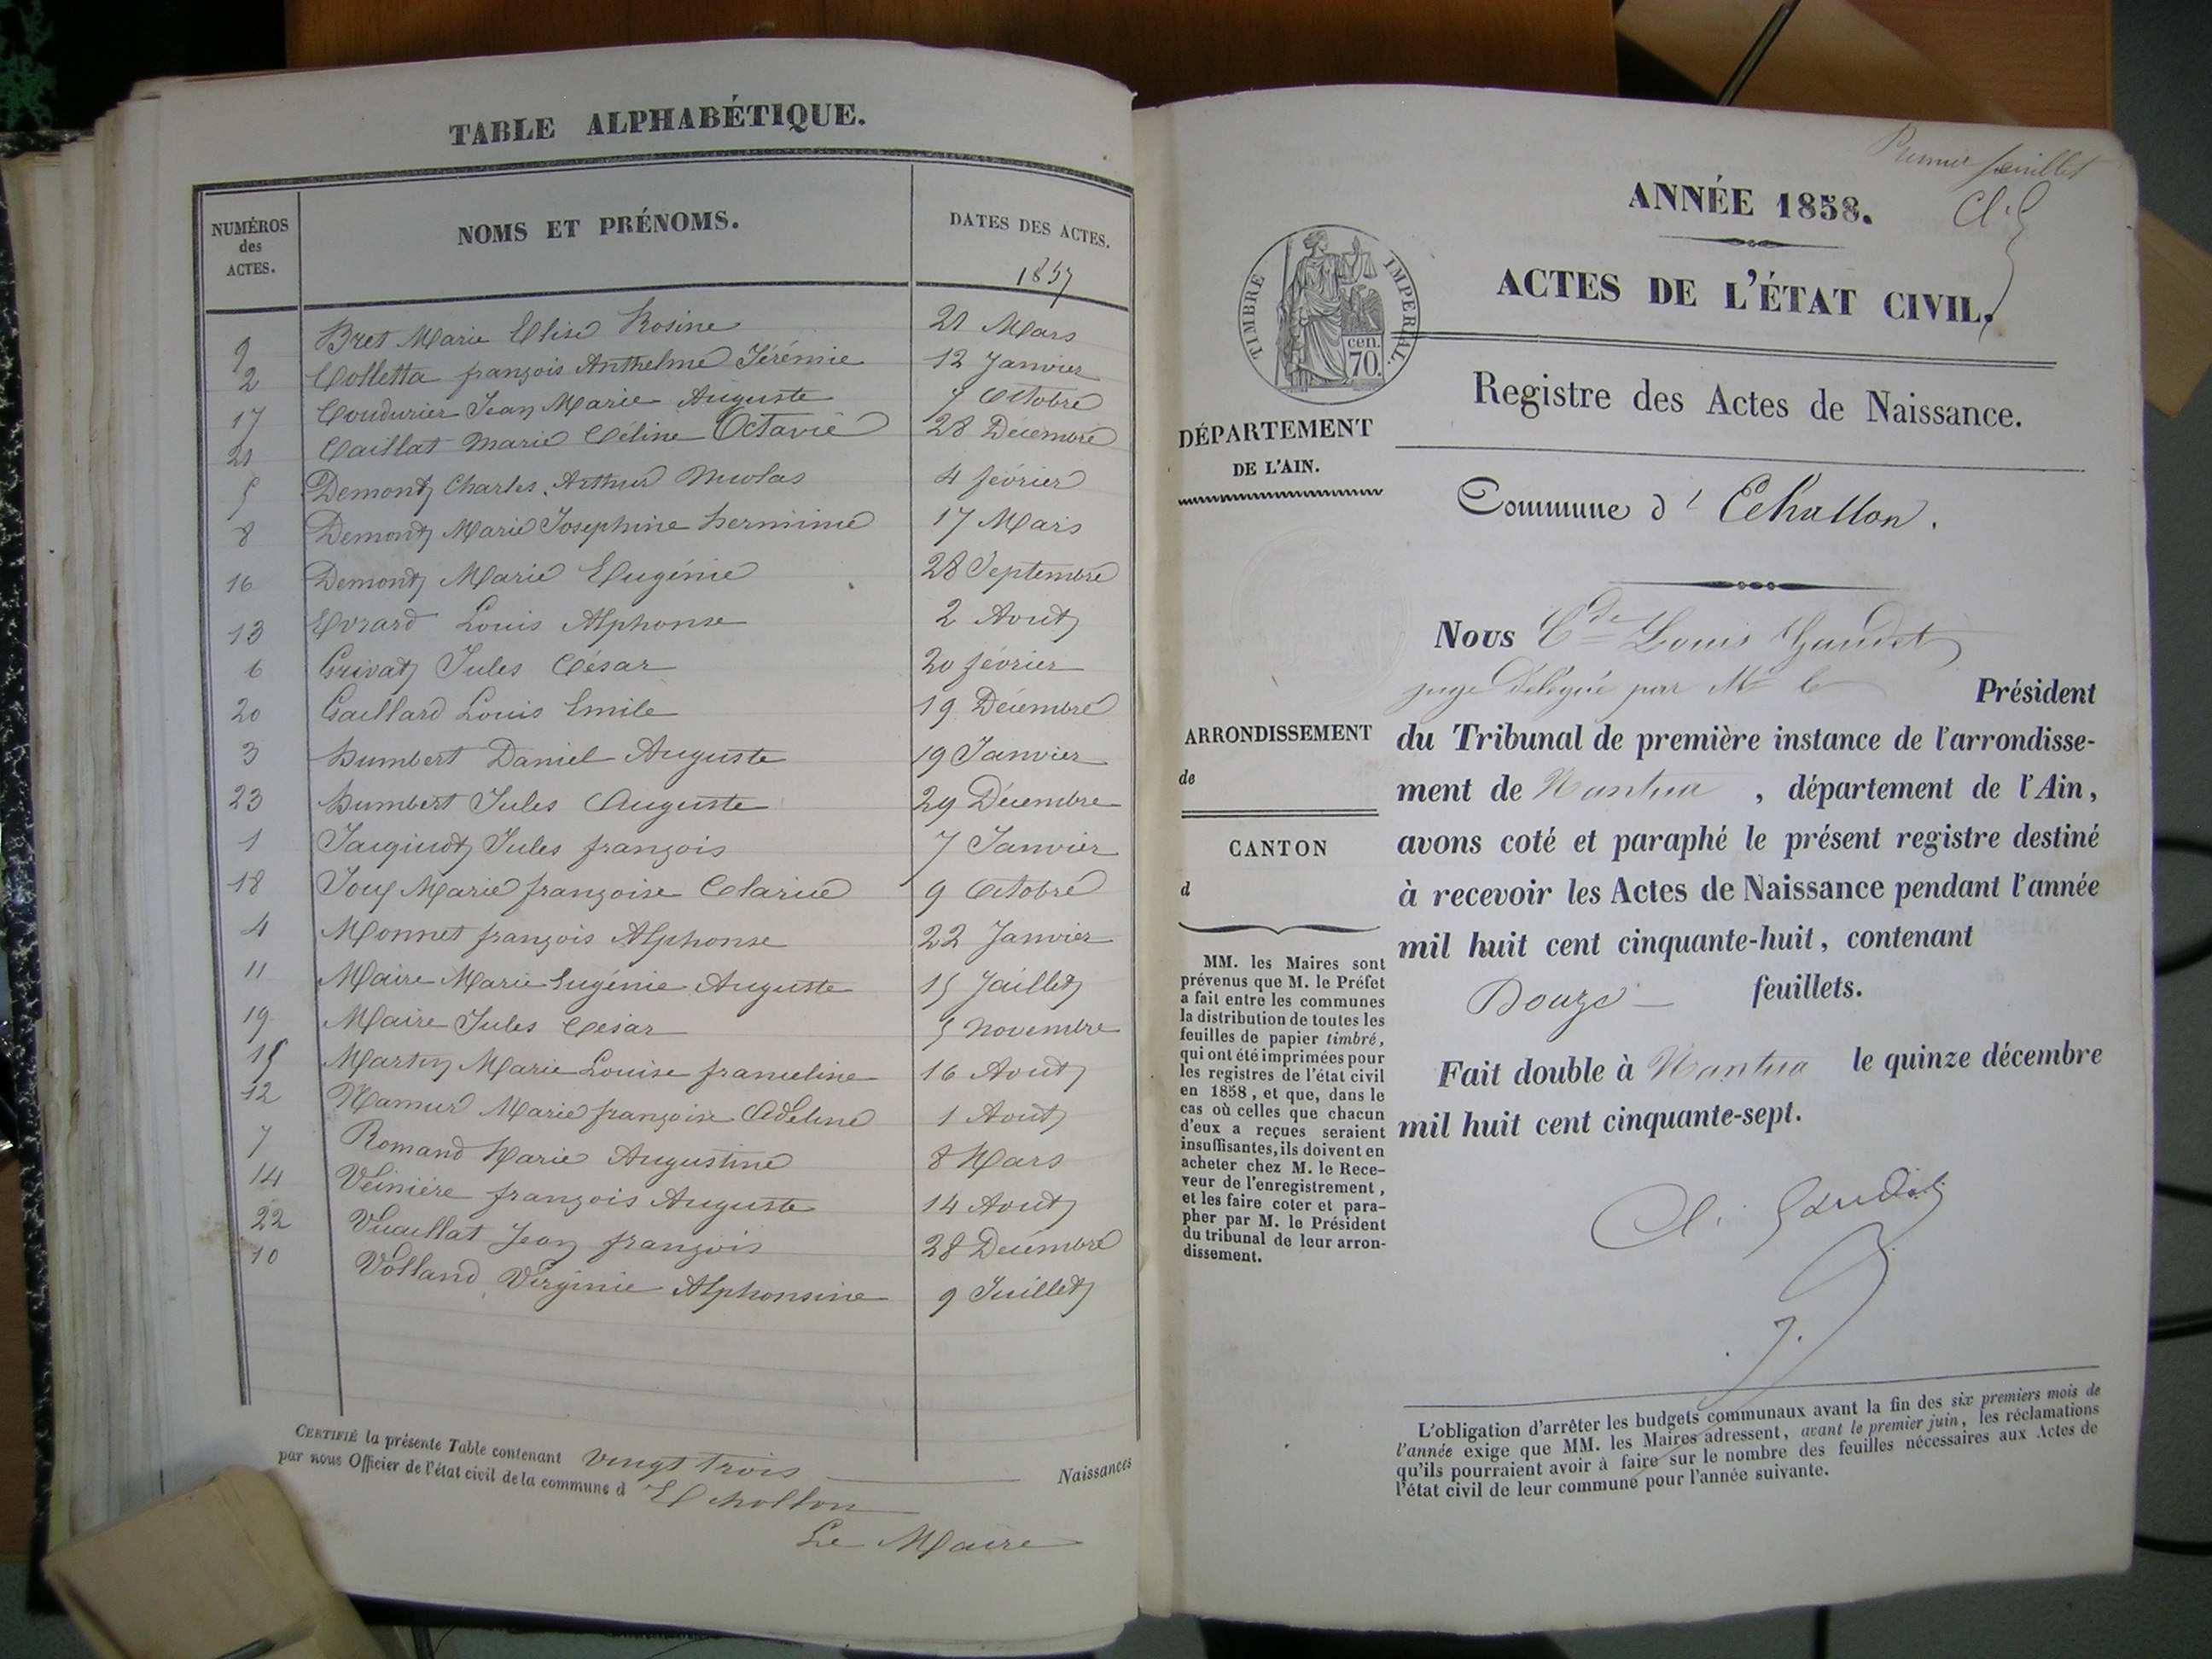 TABLE ALPHABÉTIQUE.
NUMÉROS
des
ACTES.
NOMS ET PRÉNOMS.
DATES DES ACTES.
1857
9 Bret Marie Elise Rosine 21 Mars
2 Colletta françois Anthelme Jérémie 12 Janvier
17 Coudurier Jean Marie Auguste 7 Octobre
21 Caillat Marie Céline Octavie 28 Decembre
5 Demontz Charles Arthur Nicolas 4 février
8 Demontz Marie Josephine herminie 17 Mars
16 Demontz Marie Eugénie 28 Septembre
13 Evrard Louis Alphonse 2 Aout
6 Grivat Jules César 20 février
20 Gaillard Louis Emile 19 Décembre
3 humbert Daniel Auguste 19 Janvier
23 humbert Jules Auguste 29 Décembre
1 Jules françois 7 Janvier
18 Jouf Marie françoise Clarice 9 Octobre
4 Monnet françois Alphonse 22 Janvier
11 Maire Marie Eugénie Auguste 15 Juillet
19 Maire Jules César 5 Novembre
15 Martin Marie Louise franceline 16 Aout
12 Namur Marie françoise Adeline 1 Aout
7 Romand Marie Augustine 8 Mars
14 Veinière françois Auguste 14 Aout
22 Vuaillat Jean françois 28 Decembre
10 Volland Virginie Alphonsine 9 Juillet
CERTIFIÉ la présente Table contenant vingt trois Naissances
par nous Officier de l'état civil de la commune d Echallon
Le Maire
Premier feuillet
Cl. G
ANNÉE 1858.
ACTES DE L'ÉTAT CIVIL.
TIMBRE IMPERIAL.
cen.
70.
Registre des Actes de Naissance.
DÉPARTEMENT
DE L'AIN.
Commune d' Echallon.
Nous Cde Louis Gaudet
juge délégué par Mr le Président
ARRONDISSEMENT
de
CANTON
d
du Tribunal de première instance de l'arrondisse-
ment de Nantua, département de l'Ain,
avons coté et paraphé le présent registre destiné
à recevoir les Actes de Naissance pendant l'année
mil huit cent cinquante-huit, contenant
Douze feuillets.
Fait double à Nantua le quinze décembre
mil huit cent cinquante-sept.
Cl. Gaudet
J.
MM. les Maires sont
prévenus que M. le Préfet
a fait entre les communes
la distribution de toutes les
feuilles de papier timbré,
qui ont été imprimées pour
les registres de l'état civil
en 1858, et que, dans le
cas où celles que chacun
d'eux a reçues seraient
insuffisantes, ils doivent en
acheter chez M. le Rece-
veur de l'enregistrement,
et les faire coter et para-
pher par M. le Président
du tribunal de leur arron-
dissement.
L'obligation d'arrêter les budgets communaux avant la fin des six premiers mois de
l'année exige que MM. les Maires adressent, avant le premier juin, les réclamations
qu'ils pourraient avoir à faire sur le nombre des feuilles nécessaires aux Actes de
l'état civil de leur commune pour l'année suivante.